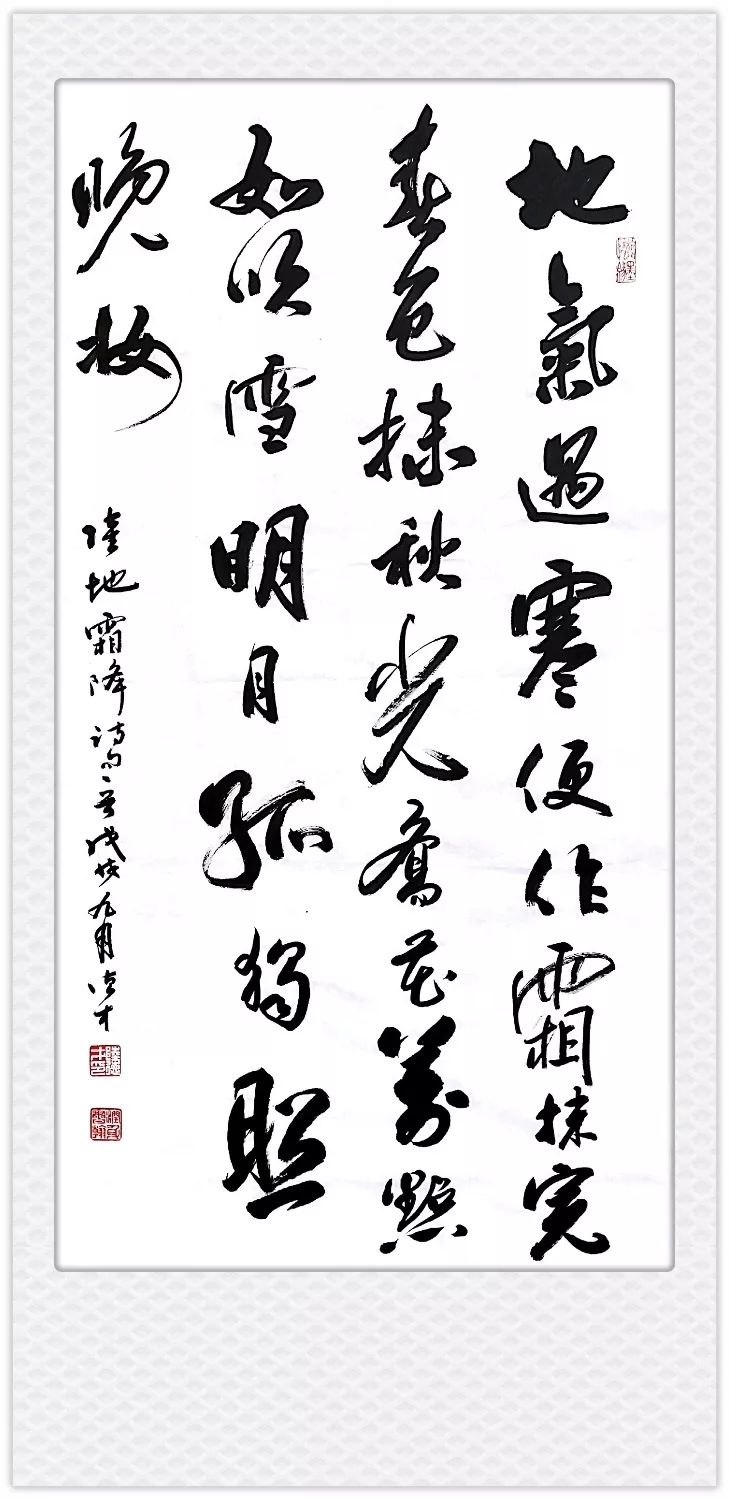 地氣遇寒便作霜抹完
春色抹秋光喬花萬點
如吹雪明月孤獨照
晚妝
陸地霜降詩一首戊戌九月